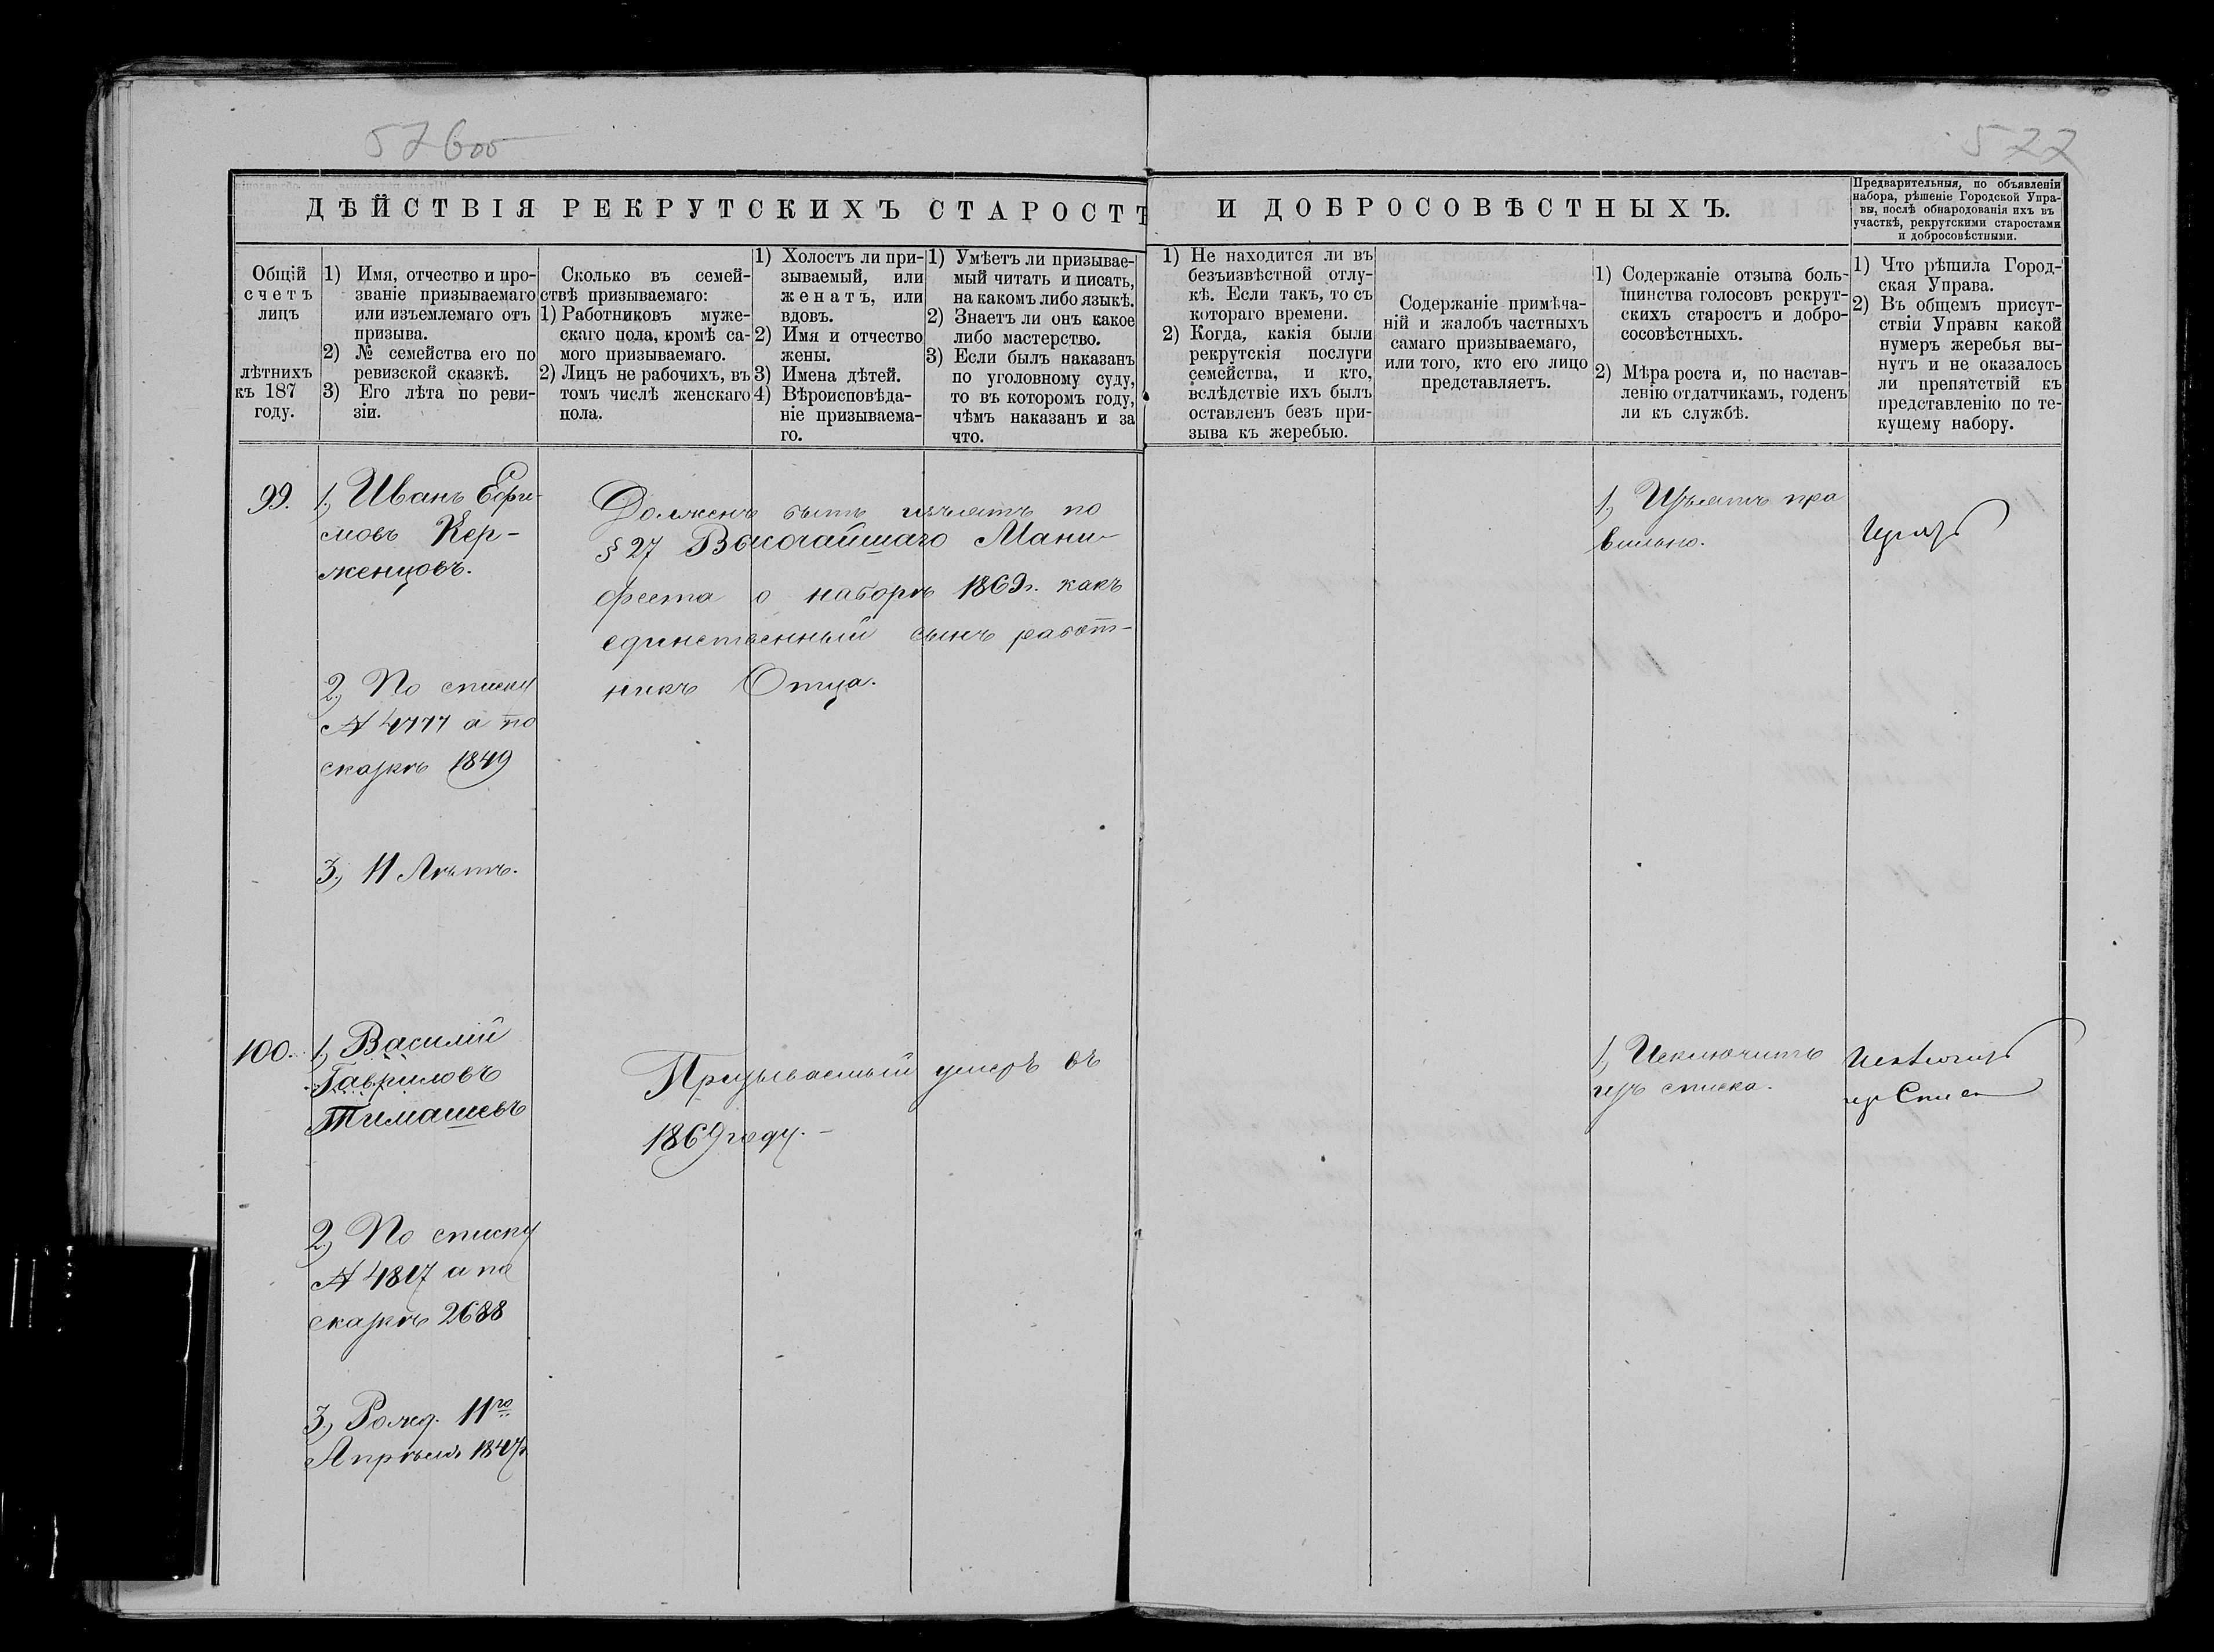 576об
577
ДѢЙСТВІЯ РЕКРУТСКИХЪ СТАРОСТЪ
И ДОБРОСОВѢСТНЫХЪ.
Предварительныя, по объявленіи
набора, рѣшеніе Городской Упра-
вы, послѣ обнародованія ихъ въ
участкѣ, рекрутскими старостами
и добросовѣстными.
Общій
счетъ
лицъ
лѣтнихъ
къ 187
году.
1) Имя, отчество и про-
званіе призываемаго
или изъемлемаго отъ
призыва.
2) № семейства его по
ревизской сказкѣ.
3) Его лѣта по реви-
зіи.
Сколько въ семей-
ствѣ призываемаго:
1) Работниковъ муже-
скаго пола, кромѣ са-
мого призываемаго.
2) Лицъ не рабочихъ, въ
томъ числѣ женскаго
пола.
1) Холостъ ли при-
зываемый, или
женатъ, или
вдовъ.
2) Имя и отчество
жены.
3) Имена дѣтей.
4) Вѣроисповѣда-
ніе призываема-
го.
1) Умѣетъ ли призывае-
мый читать и писать,
на какомъ либо языкѣ.
2) Знаетъ ли онъ какое
либо мастерство.
3) Если былъ наказанъ
по уголовному суду,
то въ которомъ году,
чѣмъ наказанъ и за
что.
1) Не находится ли въ
безъизвѣстной отлу-
кѣ. Если такъ, то съ
котораго времени.
2) Когда, какія были
рекрутскія послуги
семейства, и кто,
вслѣдствіе ихъ былъ
оставленъ безъ при-
зыва къ жеребью.
Содержаніе примѣча-
ній и жалобъ частныхъ
самаго призываемаго,
или того, кто его лицо
представляетъ.
1) Содержаніе отзыва боль-
шинства голосовъ рекрут-
скихъ старостъ и добро-
сосовѣстныхъ.
2) Мѣра роста и, по настав-
ленію отдатчикамъ, годенъ
ли къ службѣ.
1) Что рѣшила Город-
ская Управа.
2) Въ общемъ присут-
ствіи Управы какой
нумеръ жеребья вы-
нутъ и не оказалось
ли препятствій къ
представленію по те-
кущему набору.
99.
1, Иванъ Ефи-
мовъ Кер-
женцовъ.
2, По списку
№ 4777 а по
сказкѣ 1849
3, 11 Лѣтъ.
Долженъ быть изъятъ по
§ 27 Высочайшаго Мани-
феста о наборѣ 1869г. какъ
единственный сынъ работ-
никъ Отца.
1, Изъятъ пра
вильно.
100.
1, Василій
Гавриловъ
Тимашевъ
2, По списку
№ 4817 а по
сказкѣ 2688
3, Рожд. 11го
Апрѣля 1847г
Призываемый умеръ въ
1869 году.
1, Исключить
изъ списка.